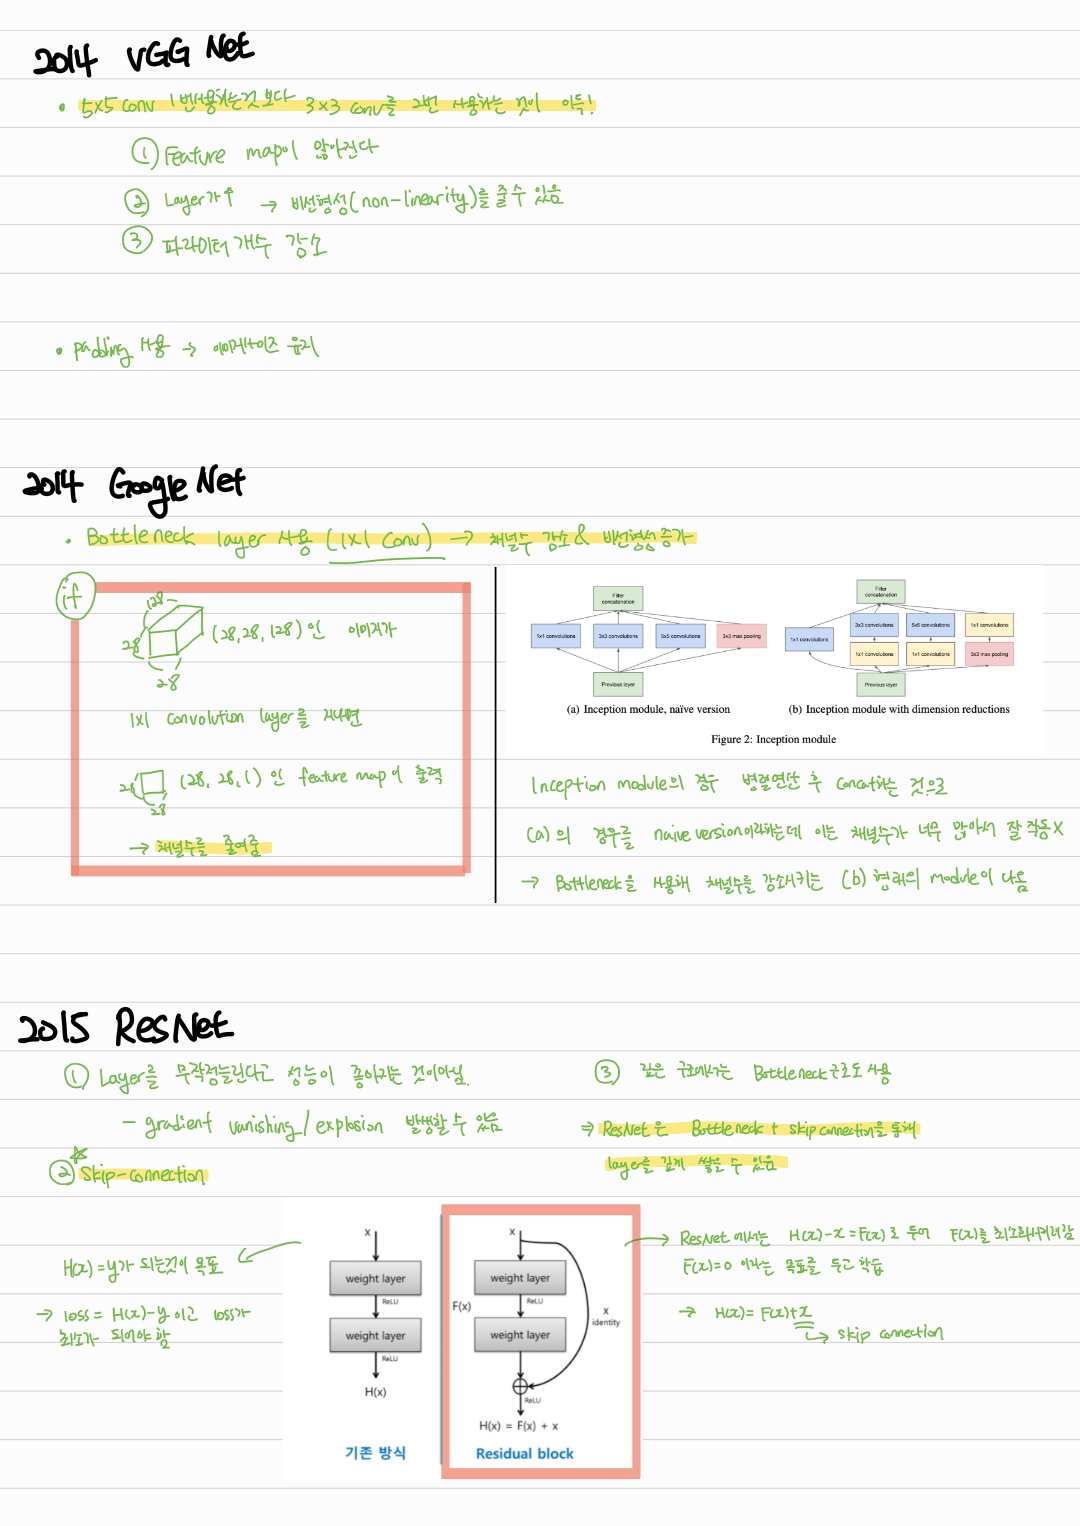 2014 VGG Net
• 5x5 conv 1번사용하는것 보다 3x3 conv를 2번 사용하는 것이 이득!
① Feature map이 많아진다
② Layer가↑ → 비선형성(non-linearity)를 줄 수 있음
③ 파라미터 개수 감소
• padding 사용 → 이미지사이즈 유지
2014 Google Net
• Bottleneck layer 사용 (1x1 Conv) → 채널수 감소 & 비선형성 증가
if
128
28
28
(28, 28, 128) 인 이미지가
1x1 convolution layer를 지나면
28
28
(28, 28, 1) 인 feature map이 출력
→ 채널수를 줄여줌
Filter concatenation
1x1 convolutions
3x3 convolutions
5x5 convolutions
3x3 max pooling
Previous layer
(a) Inception module, naïve version
Filter concatenation
3x3 convolutions
5x5 convolutions
1x1 convolutions
1x1 convolutions
1x1 convolutions
1x1 convolutions
3x3 max pooling
Previous layer
(b) Inception module with dimension reductions
Figure 2: Inception module
Inception module의 경우 병렬연산 후 concat하는 것으로
(a)의 경우를 naive version이라하는데 이는 채널수가 너무 많아서 잘 작동X
→ Bottleneck을 사용해 채널수를 감소시키는 (b) 형태의 module이 나옴
2015 ResNet
① Layer를 무작정늘린다고 성능이 좋아지는 것이아님.
- gradient vanishing/explosion 발생할 수 있음
② Skip-connection
③ 깊은 구조에서는 Bottleneck구조도 사용
⇒ ResNet은 Bottleneck + skip connection을 통해
layer를 깊게 쌓을 수 있음
H(x)=y가 되는것이 목표
→ loss = H(x)-y 이고 loss가
최소가 되어야 함
x
weight layer
ReLU
weight layer
ReLU
H(x)
기존 방식
x
weight layer
F(x)
ReLU
weight layer
x
identity
ReLU
H(x) = F(x) + x
Residual block
→ ResNet 에서는 H(x)-x = F(x)로 두어 F(x)를 최소화시키려함
F(x)=0 이라는 목표를 두고 학습
→ H(x)= F(x)+x
↳ skip connection